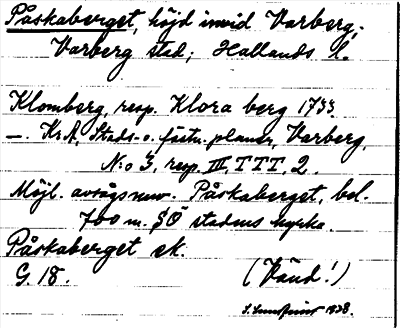 Påskaberget, höjd invid Varberg;
Varberg stad; Hallands l.
Klomberg, resp. Klora berg 1733
–. Kr.A, Stads- o. fästn. planer, Varberg,
N:o 3, resp. III, TTT, 2.
Möjl. avsågs nuv. Påskaberget, bel.
700 m. SÖ stadens kyrka.
Påskaberget ek.
G. 18. (Vänd!)
1938.